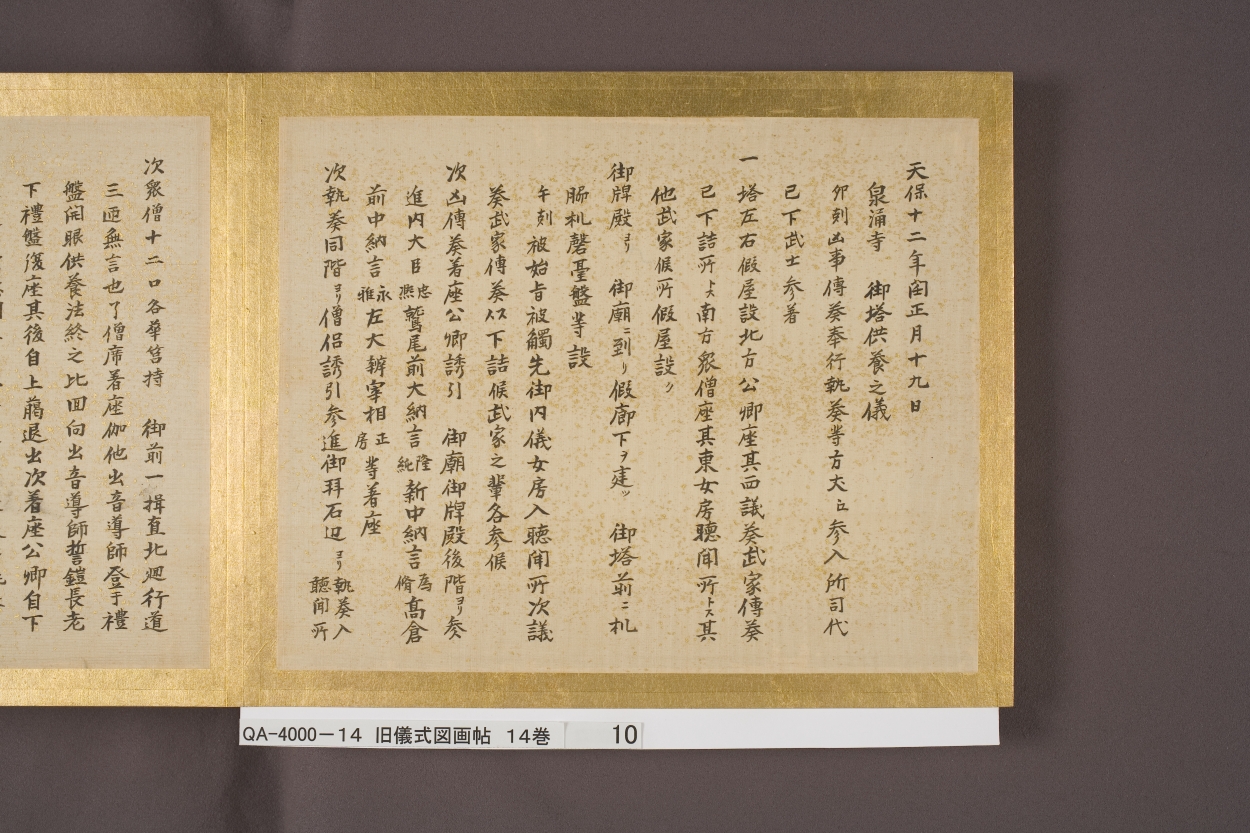 天保十二年閏正月十九日
泉涌寺 御塔供養之儀
卯刻凶事傳奏奉行執奏等方大口参入所司代
已下武士参着
一塔左右假屋設北方公卿座其西議奏武家傳奏
已下詰所トス南方衆僧座其東女房聴聞所トス其
他武家候所假屋設ク
御牌殿ヨリ 御廟ニ到リ假廊下ヲ建ツ 御塔前ニ机
脇机磬臺盤等設
午刻被始旨被觸先御内儀女房入聴聞所次議
奏武家傳奏以下詰候武家之輩各参候
次凶傳奏着座公卿誘引 御廟御牌殿後階ヨリ参
進内大臣忠凞鷲尾前大納言隆純新中納言為脩高倉
前中納言永雅左大辨宰相正房等着座
次執奏同階ヨリ僧侶誘引参進御拜石辺ヨリ執奏入聴聞所
次衆僧十二口各華筥持 御前一揖直北廻行道
三匝無言也了僧席着座伽他出音導師登于禮
盤開眼供養法終之比回向出音導師誓鎧長老
下禮盤復座其後自上﨟退出次着座公卿自下
QA-4000-14 旧儀式図画帖 14巻 10